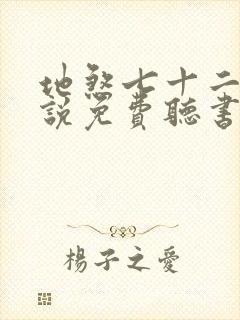 地煞七十二
說免費聽書
楊子之愛